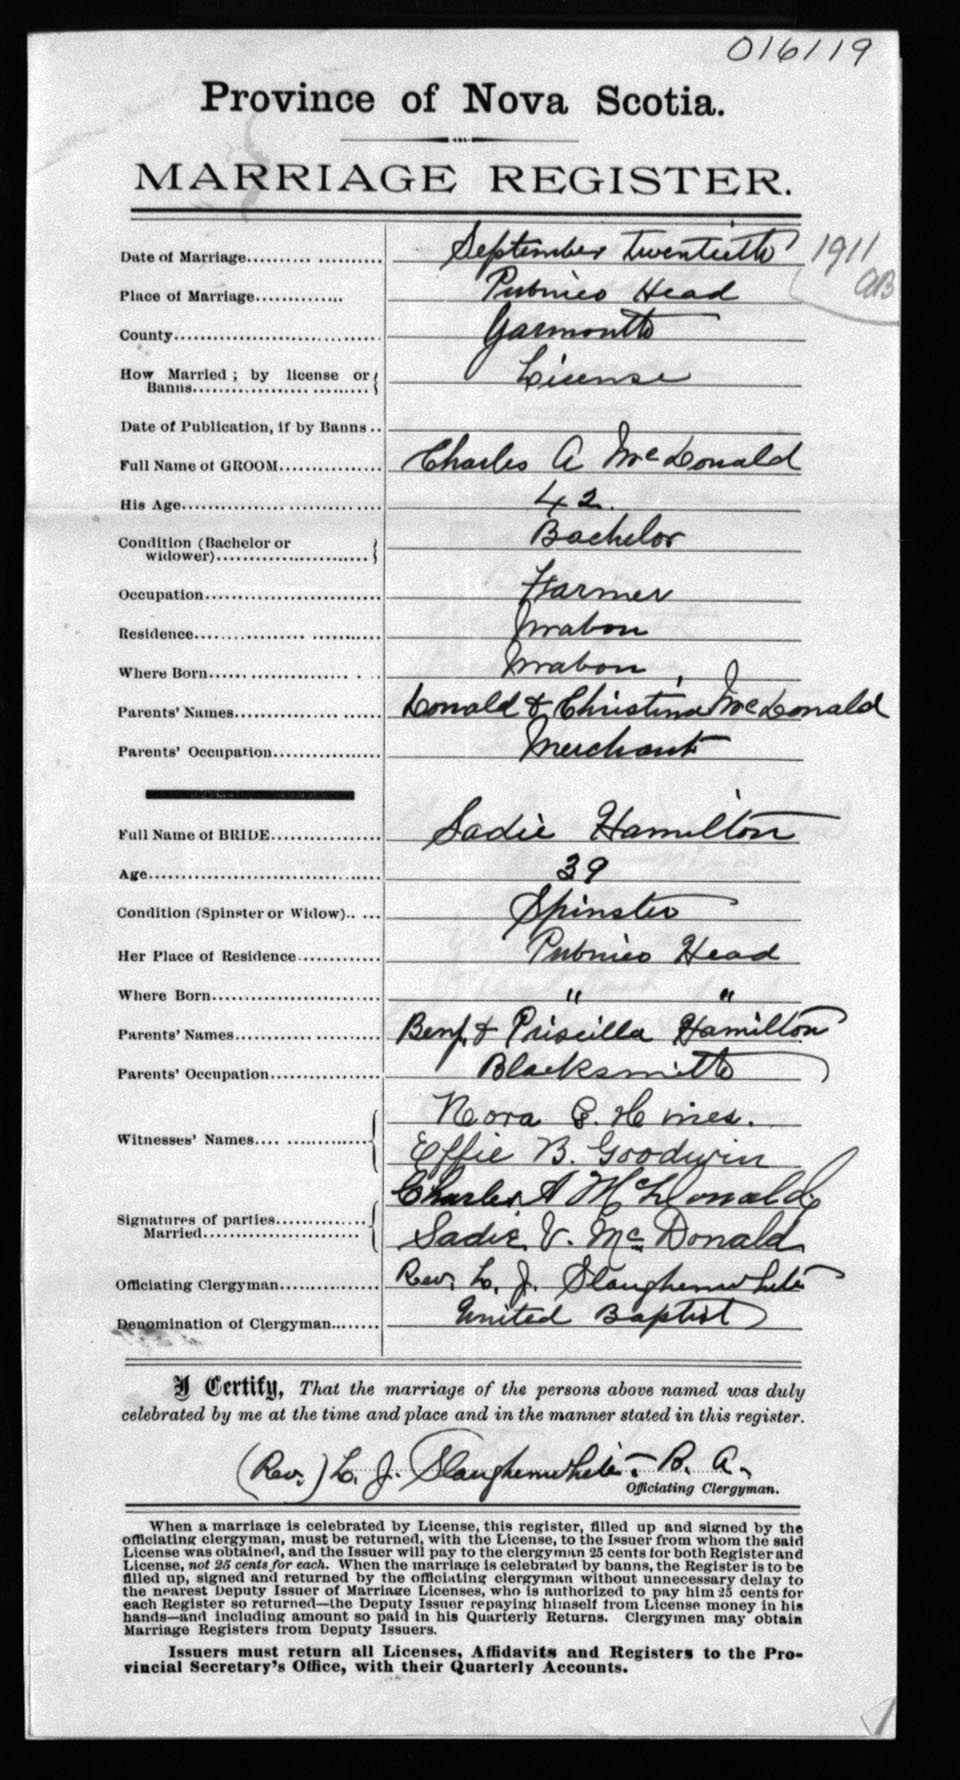 016119
Province of Nova Scotia.
MARRIAGE REGISTER.
Date of Marriage.......... .......... September twentieth 1911
AB
Place of Marriage............. Pubnico Head
County................................ Yarmouth
How Married ; by license or
Banns............................. License
Date of Publication, if by Banns ..
Full Name of GROOM................ Charles A McDonald
His Age................................ 42.
Condition (Bachelor or
widower)........................... Bachelor
Occupation........................... Farmer
Residence............................. Mabou
Where Born........................... Mabou
Parents' Names...................... Donald & Christina McDonald
Parents' Occupation................ Merchant
Full Name of BRIDE................. Sadie Hamilton
Age...................................... 39
Condition (Spinster or Widow).. ... Spinster
Her Place of Residence............. Pubnico Head
Where Born........................... " "
Parents' Names...................... Benj. & Priscilla Hamilton
Parents' Occupation................ Blacksmith
Witnesses' Names.... .............. Nora E. Hines.
Effie B. Goodwin
Signatures of parties............... Charles A McDonald
Married........................... Sadie V. McDonald
Officiating Clergyman............... Rev. L. J. Slaughenwhite
Denomination of Clergyman........ United Baptist
I Certify, That the marriage of the persons above named was duly
celebrated by me at the time and place and in the manner stated in this register.
(Rev.) L. J. Slaughenwhite, B. A.,
Officiating Clergyman.
When a marriage is celebrated by License, this register, filled up and signed by the
officiating clergyman, must be returned, with the License, to the Issuer from whom the said
License was obtained, and the Issuer will pay to the clergyman 25 cents for both Register and
License, not 25 cents for each. When the marriage is celebrated by banns, the Register is to be
filled up, signed and returned by the officiating clergyman without unnecessary delay to
the nearest Deputy Issuer of Marriage Licenses, who is authorized to pay him 25 cents for
each Register so returned—the Deputy Issuer repaying himself from License money in his
hands—and including amount so paid in his Quarterly Returns. Clergymen may obtain
Marriage Registers from Deputy Issuers.
Issuers must return all Licenses, Affidavits and Registers to the Pro-
vincial Secretary's Office, with their Quarterly Accounts.